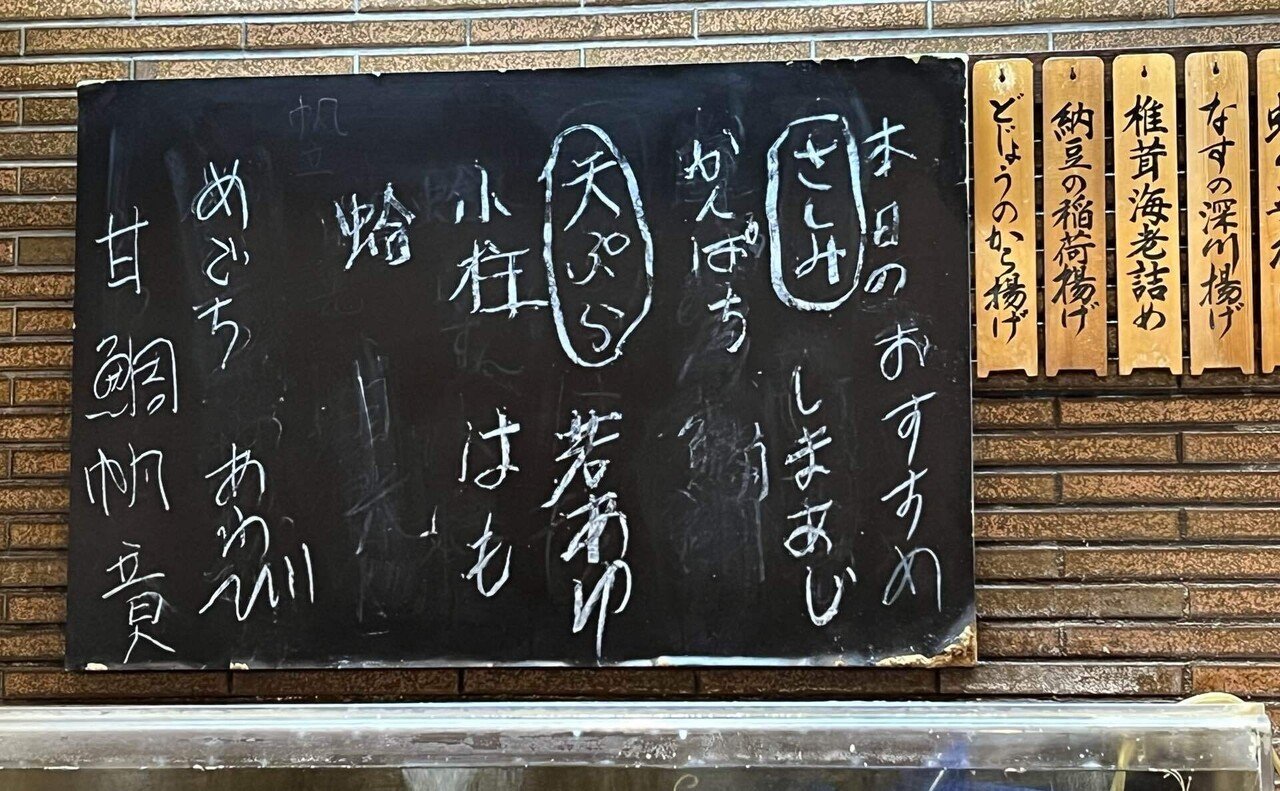 なすの深川揚げ
椎茸海老詰め
納豆の稲荷揚げ
どじょうのから揚げ
本日のおすすめ
さしみ しまあじ
かんぱち
天ぷら 若あゆ
小柱 はも
蛤
めごち あわび
甘鯛 帆立貝